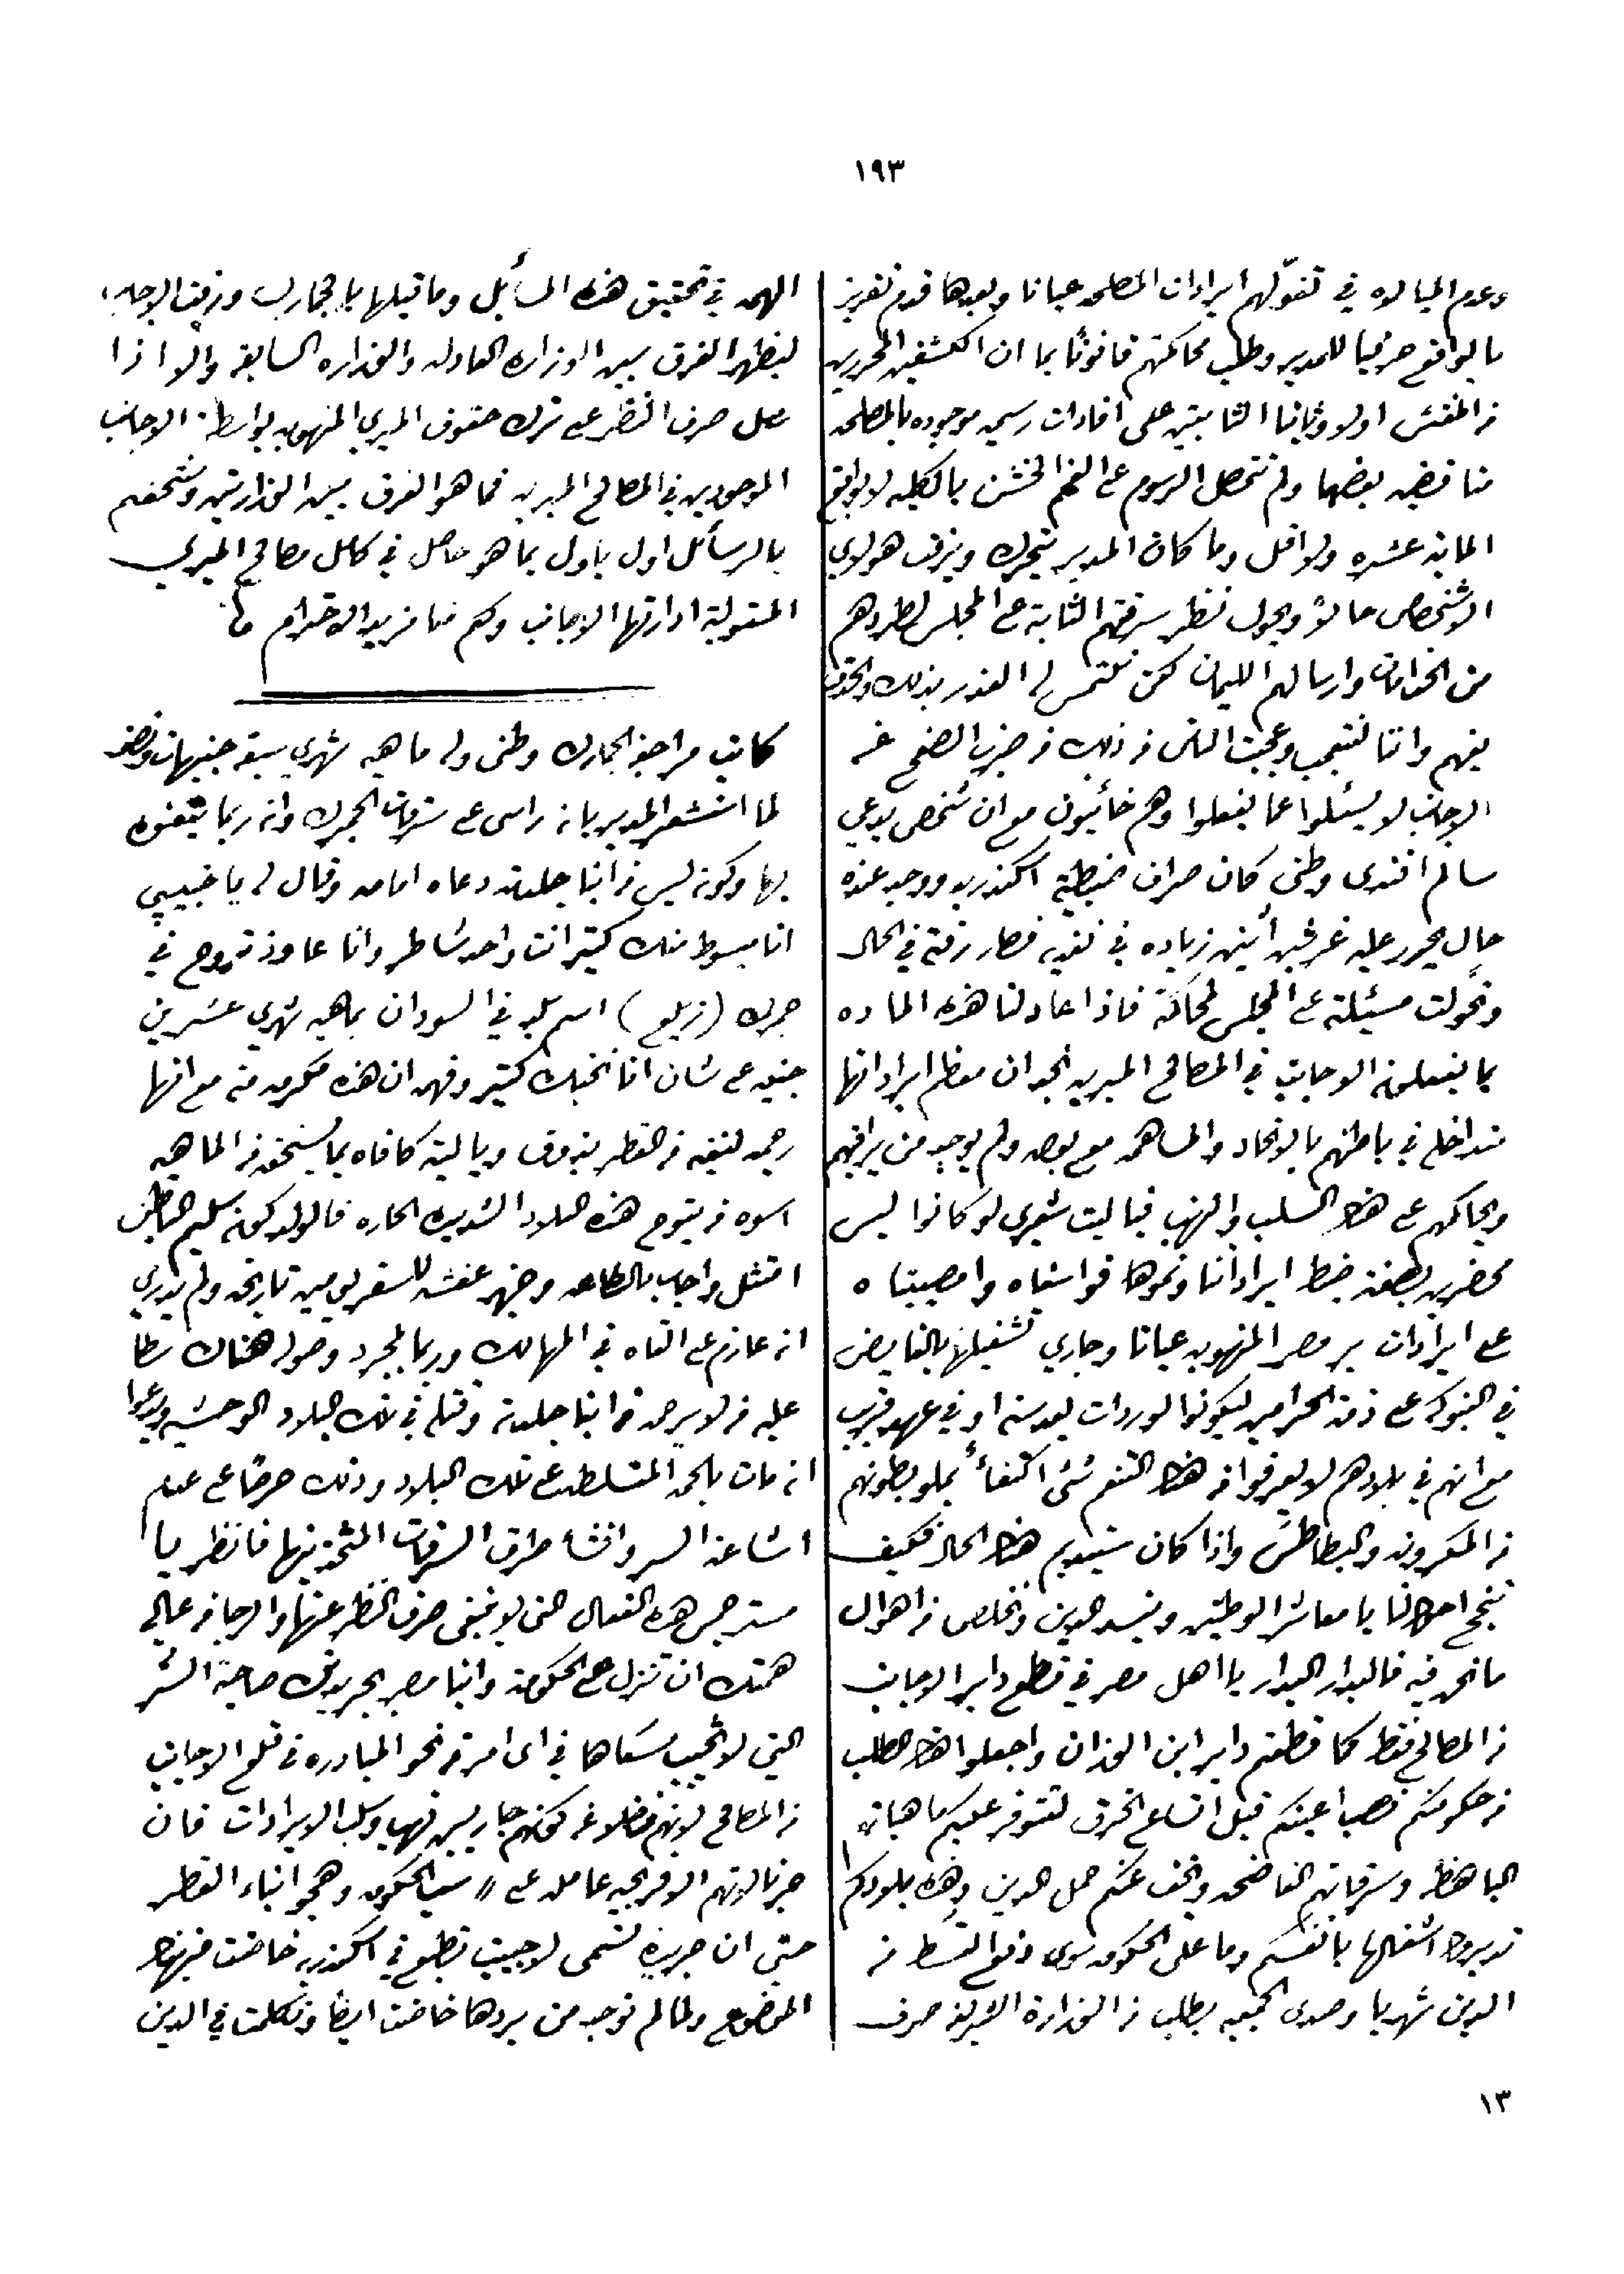 ١٩٣
وعدم المبالاه في تغولهم ايرادات المصلحه عيانا وبعدها قدم تقرير
بالواقع حرفيا للمدير وطلب محاكمتهم قانونًا بما ان الكشفين المحررين
من المفتش اولا وثانيا الثابتين على افادات رسميه موجوده بالمصلحه
مناقضين بعضها ولم تتحصل الرسوم على الفحم الخشن بالكليه لا بواقع
المايه عشره ولا اقل وما كان المدير يتحرك ويرفت هولاي
الاشخاص حالا ويحول نظر سرقتهم الثابته على المجلس لطردهم
من الخدامات وارسالهم الليمان لكن نلتمس له العذر بذلك
فيهم واننا نتعجب وعجبت الناس من ذلك من ضرب الصفح عن
الاجانب لا يسئلوا عما يفعلوا وهم خائنون مع ان شخص يدعي
سالم افندى وطنى كان صراف ضبطية اسكندريه ووجد عنده
حال تحرر عليه غرشين اثنين زياده في نقديه فصار رفته في الحال
وتحولت مسئلته على المجلس لمحاكمته فاذا عادلنا هذه الماده
بما يفعلونه الاجانب في المصالح الميريه نجد ان معظم ايراداتها
متداخله في باطنهم بالاتحاد والمساهمه مع بعض ولم يوجد من يراقبهم
ويحاكمهم على هذا السلب والنهب فيا ليت شعرى لو كانوا ليس
محضرين بصفة ضبط ايراداتنا ونموها فوا اسفاه وامصيبتاه
على ايرادات بر مصر المنهوبه عيانا وجاري تشغيلها بالفايض
في البنوكه على ذمة الحراميه ليكونوا لوردات بعد سنه او في عهد قريب
مع انهم في بلادهم لا يعرفوا من هذا التنعم شئ اكتفاءً بملو بطونهم
من المكرونه والبطاطس واذا كان ستيديم هذا الحال فكيف
تنجح احوالنا يا معاشر الوطنيين وينسد الدين ونخلص من اهوال
ما نحن فيه فالبدار البدار يا اهل مصر في قطع دابر الاجانب
من المصالح فقط كما قطعتم دابر ابن الوزان واجعلوا هذا الطلب
من حكومتكم نصب اعينكم قبل اتساع الخرق لتتوفر عليكم ماهياتهم
الباهظه وسرقاتهم الفاضحه ويخف عنكم حمل الدين وهذه بلادكم
تديروا اشغالها بانفسكم وما على الحكومه سوى دفع القسط من
الدين شهريا وصدى الجمعيه يطلب من الوزارة الشريفه صرف
الهمه في تحقيق هذه المسائل وما قبلها بالجمارك ورفت الاجانب
ليظهر الفرق بين الوزاره العادله والوزاره السابقه والا اذا
حصل صرف النظر على ترك حقوق الميري المنهوبه بواسطة الاجانب
الموجودين في المصالح الميريه فما هو الفرق بين الوزارتين وسنحفهم
بالرسائل اول باول بما هو حاصل في كامل مصالح الميري
المتوليه ادارتها الاجانب ولكم منا مزيد الاحترام
كاتب مراجعة الجمارك وطنى وله ماهيه شهري سبعة جنيهات ونصف
لما استشعر المدير بانه راسى على سرقات الجمرك وانه ربما يتفوه
بها وكونه ليس من ابنا جلدته دعاه امامه وقال له يا حبيبي
انا مبسوط منك كتير انت واحد شاطر وانا عاوز تروح في
جمرك (زيلع) اسم بلد في السودان بماهيه شهري عشرين
جنيه على شان انا نحبك كتير وفهمه ان هذه مكرمه منه مع انها
رحمه لنفيه من القطر بذوق ويا ليته كافاه بما يستحق من الماهيه
اسوه من يتوجه هذه البلاد الشديده الحاره فالولد كونه سليم الباطن
امتثل واجاب بالطاعه وجهز عفشه للسفر يومين تاريخه ولم يدري
انه عازم على القاه في المهالك وربما بمجرد وصوله هناك سطا
عليه من لا يرحمه من ابنا جلدته وقتله في تلك البلاد الوحشيه وادعوا
انه مات بالحمه المتسلطه على تلك البلاد وذلك حرصًا على عدم
اشاعة السر وافشا طرق السرقات المتحذ بها فانظر يا
مستر جس هذه الفعال التى لا ينبغى صرف النظر عنها والرجا من عالي
همتك ان تنزل على الحكومه وابنا مصر بجريدتك صاحبة النشر
التى لا يخيب مسعاها في اى امر من نحو المبادره في قلع الاجانب
من المصالح لانهم فضلا عن كونهم جاريين نهب وسلب الايرادات فان
جرنالاتهم الافرنجيه عامله على سب الحكومه وهجو ابناء القطر
حتى ان جريدة تسمى لاجيبت تطبع في اسكندريه خاضت في هذا
الموضوع ولما لم توجد من يردها خاضت ايضًا وتكلمت في الدين
١٣